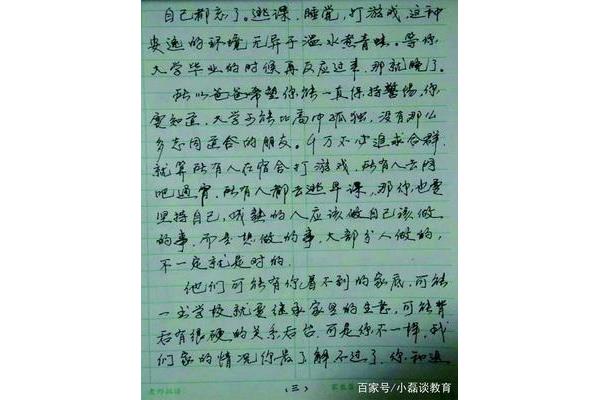 自己都忘了。逃课、睡觉,打游戏,这种
安逸的环境无异于温水煮青蛙。等你
大学毕业的时候再反应过来,那就晚了。
所以爸爸希望你能一直保持警惕,你
要知道,大学可能比高中孤独,没有那么
多志同道合的朋友。千万不必追求合群,
就算所有人在宿舍打游戏,所有人去网
吧通宵,所有人都去逃早课,那你也要
坚持自己,成熟的人应该做自己该做
的事,而是想做的事,大部分人做的,
不一定就是对的。
他们可能有你看不到的家底,可能
一出学校就要继承家里的生意,可能背
后有很硬的关系后台,可是你不一样,我
们家的情况你最了解不过了,你知道
(三)
百家号/小磊谈教育